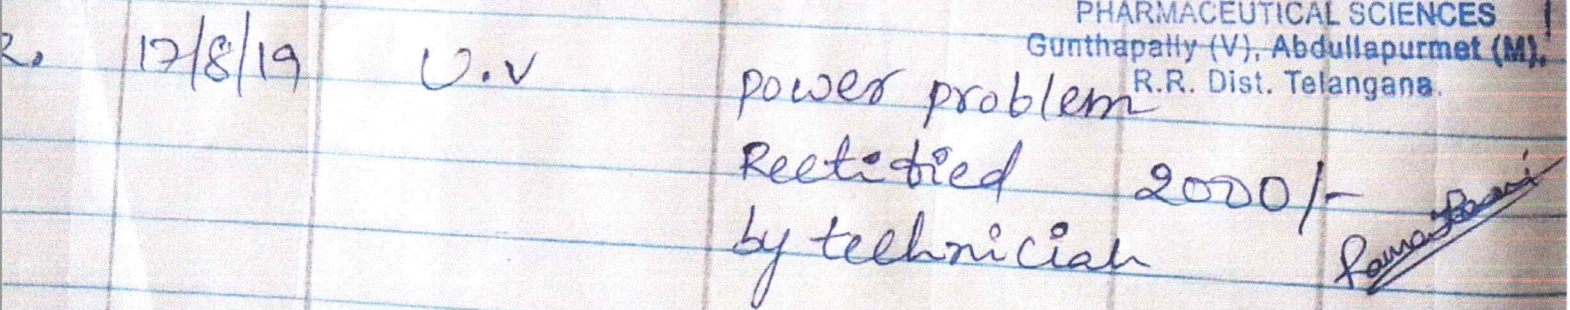 PHARMACEUTICAL SCIENCES
Gunthapally (V), Abdullapurmet (M),
R.R. Dist. Telangana.
2. 17/8/19 U.V power problem
Rectified 2000/-
by technician